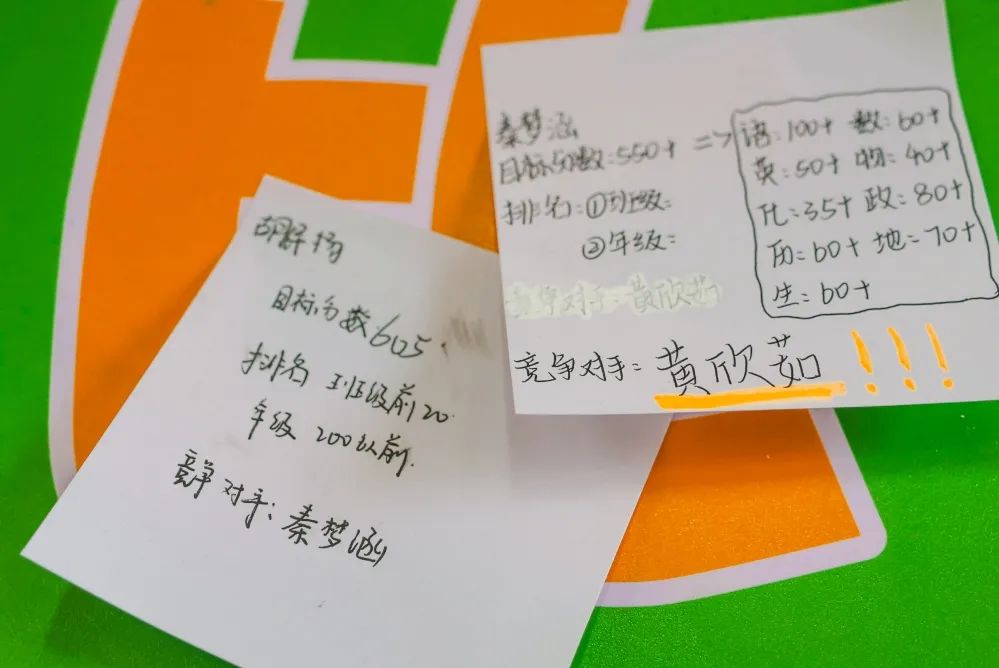 秦梦涵
目标分数:550+ =>
排名:①班级:
②年级:
竞争对手:黄欣茹
竞争对手:黄欣茹!!!
语:100+ 数:60+
英:50+ 物:40+
化:35+ 政:80+
历:60+ 地:70+
生:60+
胡舒扬
目标分数605.
排名 班级前20.
年级 200以前.
竞争对手:秦梦涵